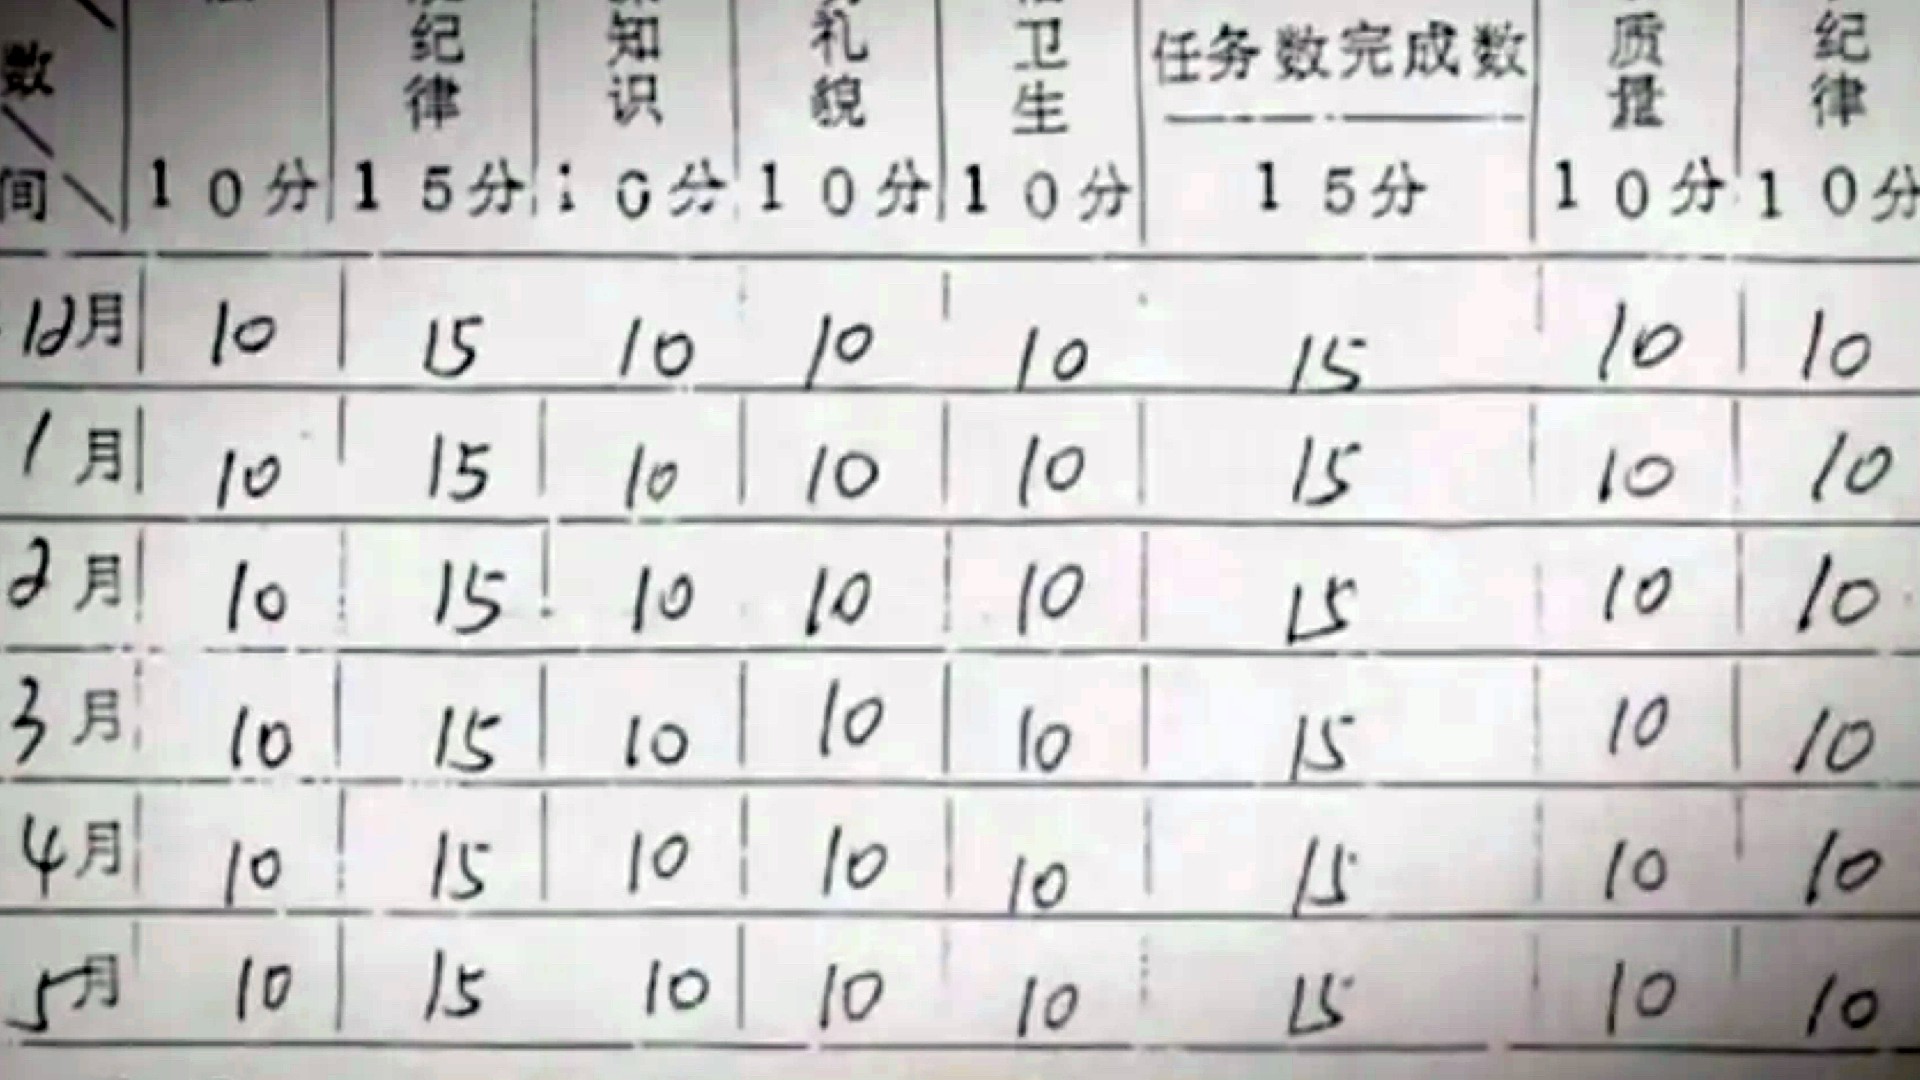 数 纪律 知识 礼貌 卫生 任务数完成数 质量 纪律
间 10分 15分 10分 10分 10分 15分 10分 10分
12月 10 15 10 10 10 15 10 10
1月 10 15 10 10 10 15 10 10
2月 10 15 10 10 10 15 10 10
3月 10 15 10 10 10 15 10 10
4月 10 15 10 10 10 15 10 10
5月 10 15 10 10 10 15 10 10